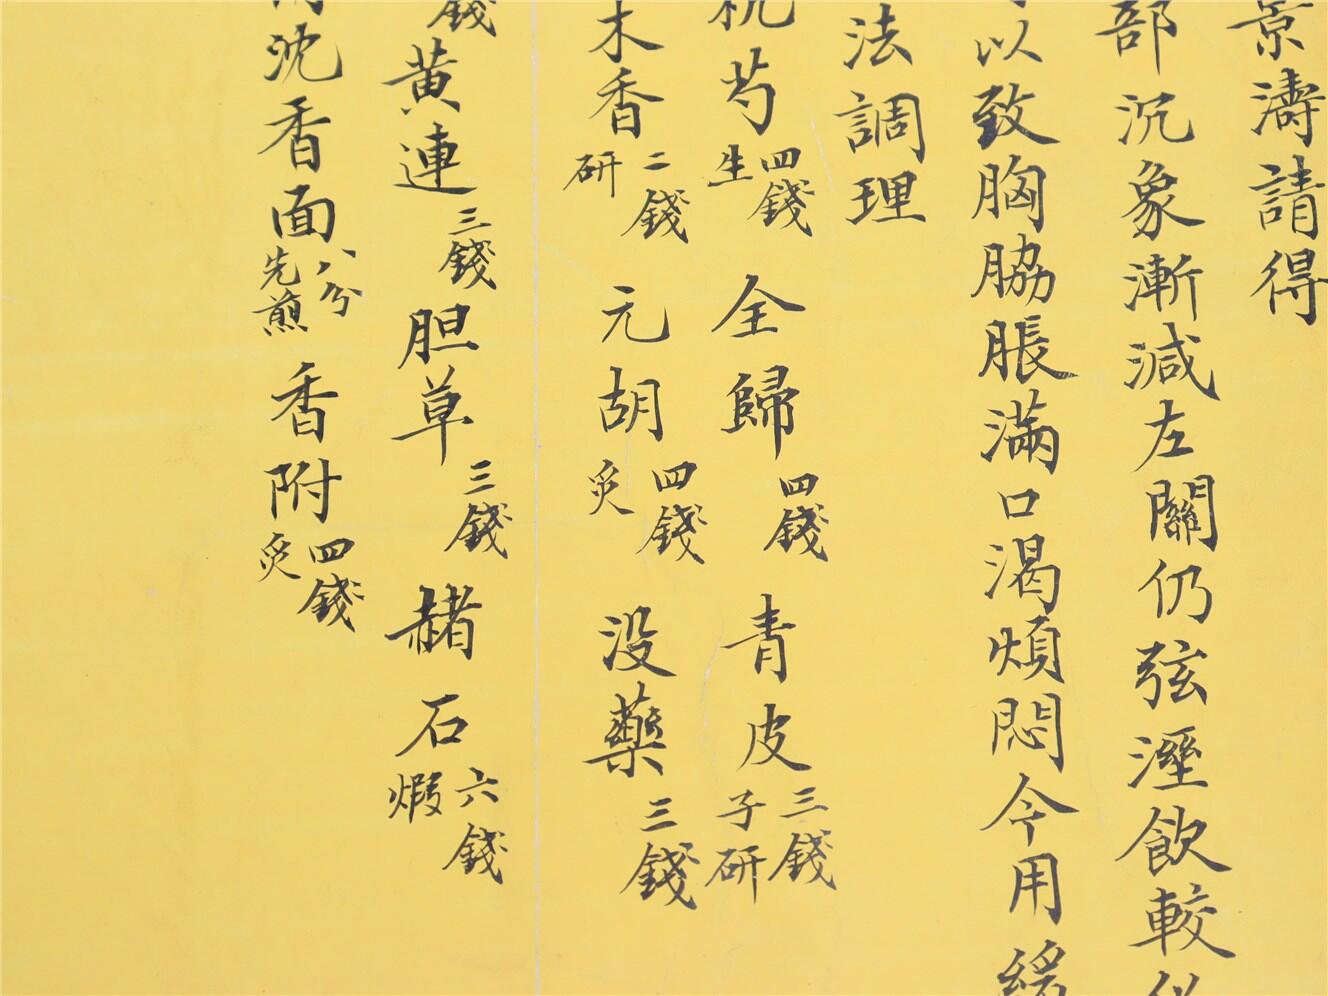 景濤請得
部沉象漸減左關仍弦溼飲較
以致胸脇脹滿口渴煩悶今用緩
法調理
杭芍四錢生 全歸四錢 青皮三錢子研
木香二錢研 元胡四錢炙 没藥三錢
錢 黄連三錢 胆草三錢 赭石六錢煆
沈香面八分先煎 香附四錢炙